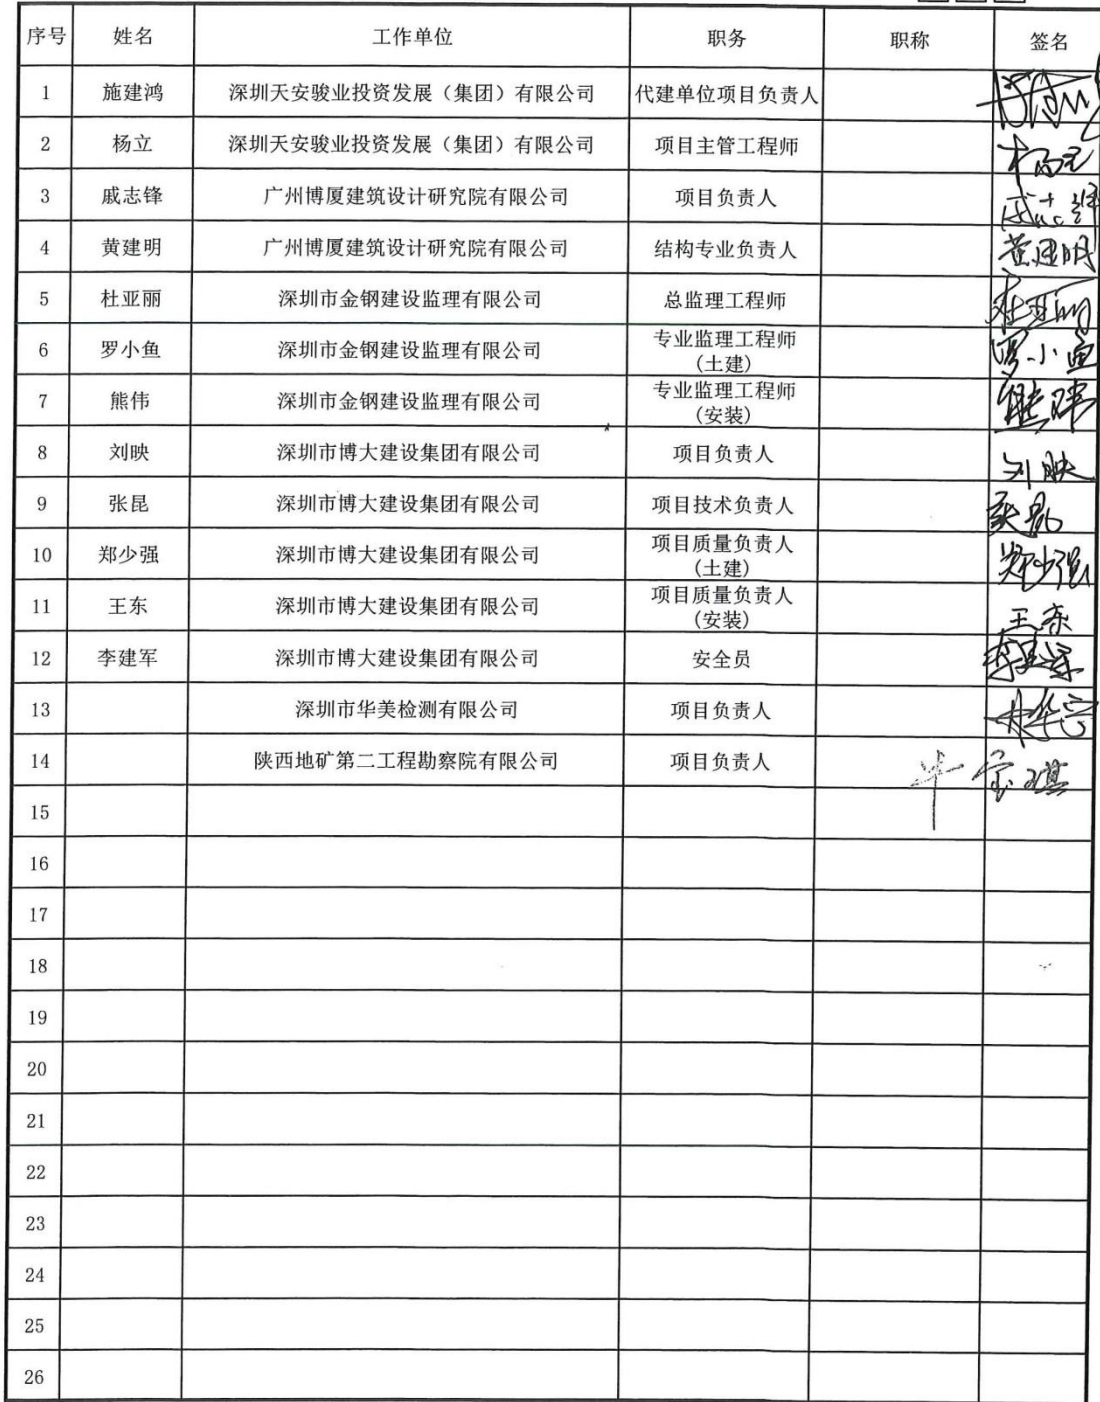 序号 姓名 工作单位 职务 职称 签名
1 施建鸿 深圳天安骏业投资发展（集团）有限公司 代建单位项目负责人
2 杨立 深圳天安骏业投资发展（集团）有限公司 项目主管工程师 杨立
3 戚志锋 广州博厦建筑设计研究院有限公司 项目负责人 戚志锋
4 黄建明 广州博厦建筑设计研究院有限公司 结构专业负责人 黄建明
5 杜亚丽 深圳市金钢建设监理有限公司 总监理工程师 杜亚丽
6 罗小鱼 深圳市金钢建设监理有限公司 专业监理工程师 罗小鱼
(土建)
7 熊伟 深圳市金钢建设监理有限公司 专业监理工程师 熊伟
(安装)
8 刘映 深圳市博大建设集团有限公司 项目负责人 刘映
9 张昆 深圳市博大建设集团有限公司 项目技术负责人 张昆
10 郑少强 深圳市博大建设集团有限公司 项目质量负责人 郑少强
(土建)
11 王东 深圳市博大建设集团有限公司 项目质量负责人 王东
(安装)
12 李建军 深圳市博大建设集团有限公司 安全员 李建军
13 深圳市华美检测有限公司 项目负责人
14 陕西地矿第二工程勘察院有限公司 项目负责人
15
16
17
18
19
20
21
22
23
24
25
26